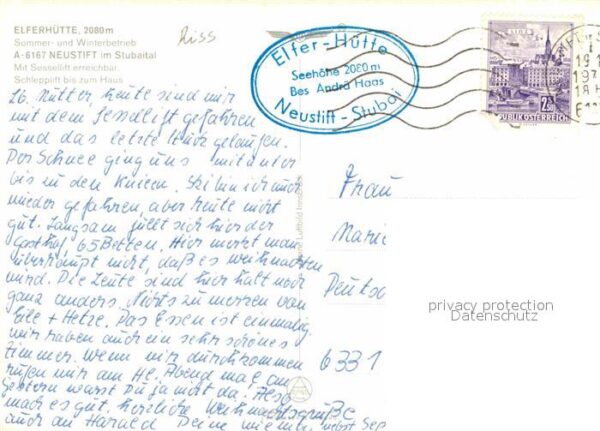 ELFERHÜTTE, 2080 m
Sommer- und Winterbetrieb
A-6167 NEUSTIFT im Stubaital
Mit Sessellift erreichbar
Schlepplift bis zum Haus
Riss
Elfer-Hütte
Seehöhe 2080 m
Bes Andrä Haas
Neustift - Stubai
LINZ
2S
REPUBLIK ÖSTERREICH
Lb. Mutter, heute sind wir
mit dem Sessellift gefahren
und das letzte Stück gelaufen.
Der Schnee ging uns mitunter
bis zu den Knieen. Ski bin ich auch
wieder gefahren, aber heute nicht
gut. Langsam füllt sich hier der
Gasthof, 65 Betten. Hier merkt man
überhaupt nicht, daß es weihnachten
wird. Die Leute sind hier halt noch
ganz anders. Nichts zu merken von
Eile + Hetze. Das Essen ist einmalig
wir haben auch ein sehr schönes
Zimmer. Wenn wir durchkommen
rufen wir am Hl. Abend mal an
gestern warst Du ja nicht da. Also
mach es gut. Herzliche Weihnachtsgrüße
auch an Harald Deine
Frau
Marie
Deutsc
6331
privacy protection
Datenschutz